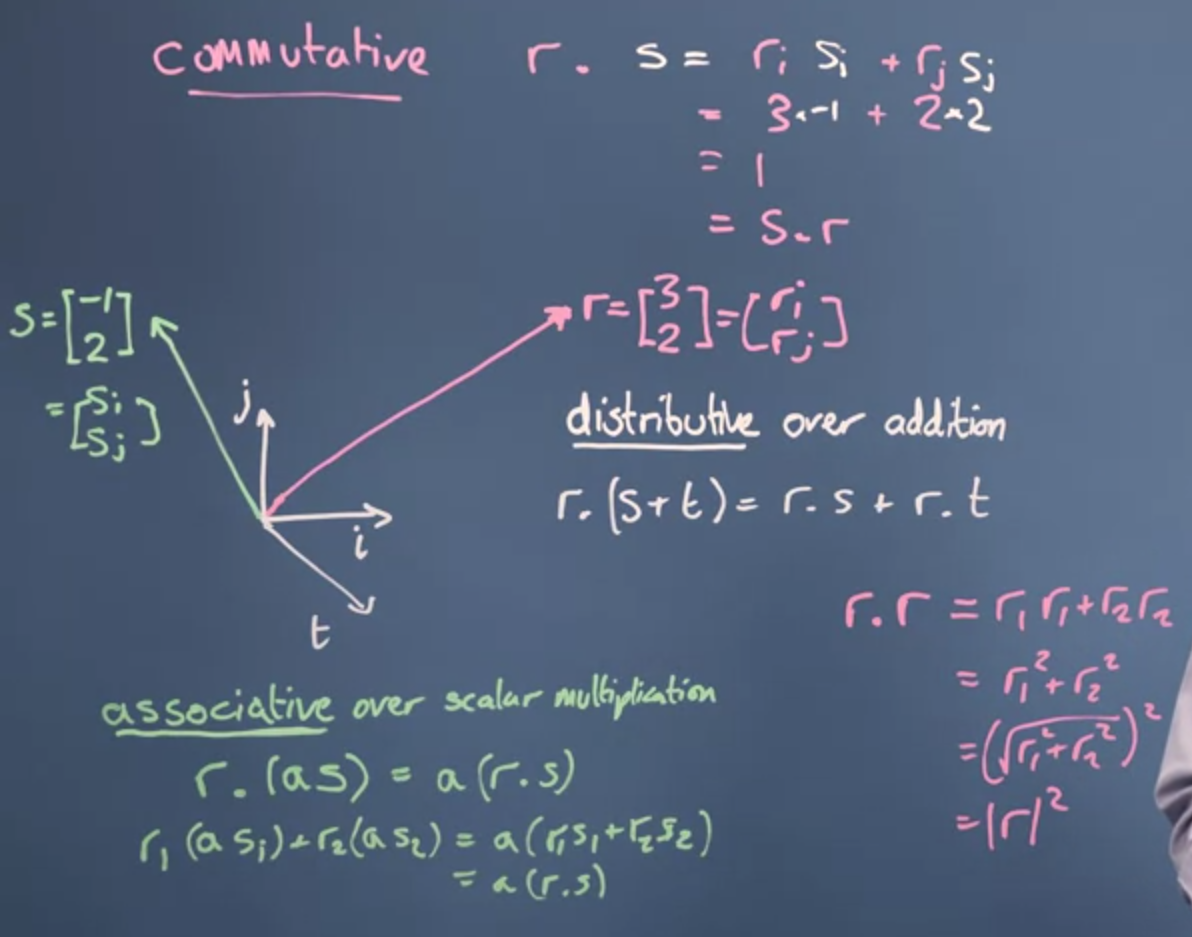 commutative
r. s = rᵢ sᵢ + rⱼ sⱼ
= 3×-1 + 2×2
= 1
= s.r
s = [-1
2]
= [sᵢ
sⱼ]
r = [3
2] = [rᵢ
rⱼ]
j
i
t
distributive over addition
r.(s+t) = r.s + r.t
r.r = r₁r₁+r₂r₂
= r₁²+r₂²
=(√r₁²+r₂²)²
=|r|²
associative over scalar multiplication
r.(as) = a(r.s)
r₁(asᵢ)+r₂(as₂) = a(r₁s₁+r₂s₂)
= a(r.s)